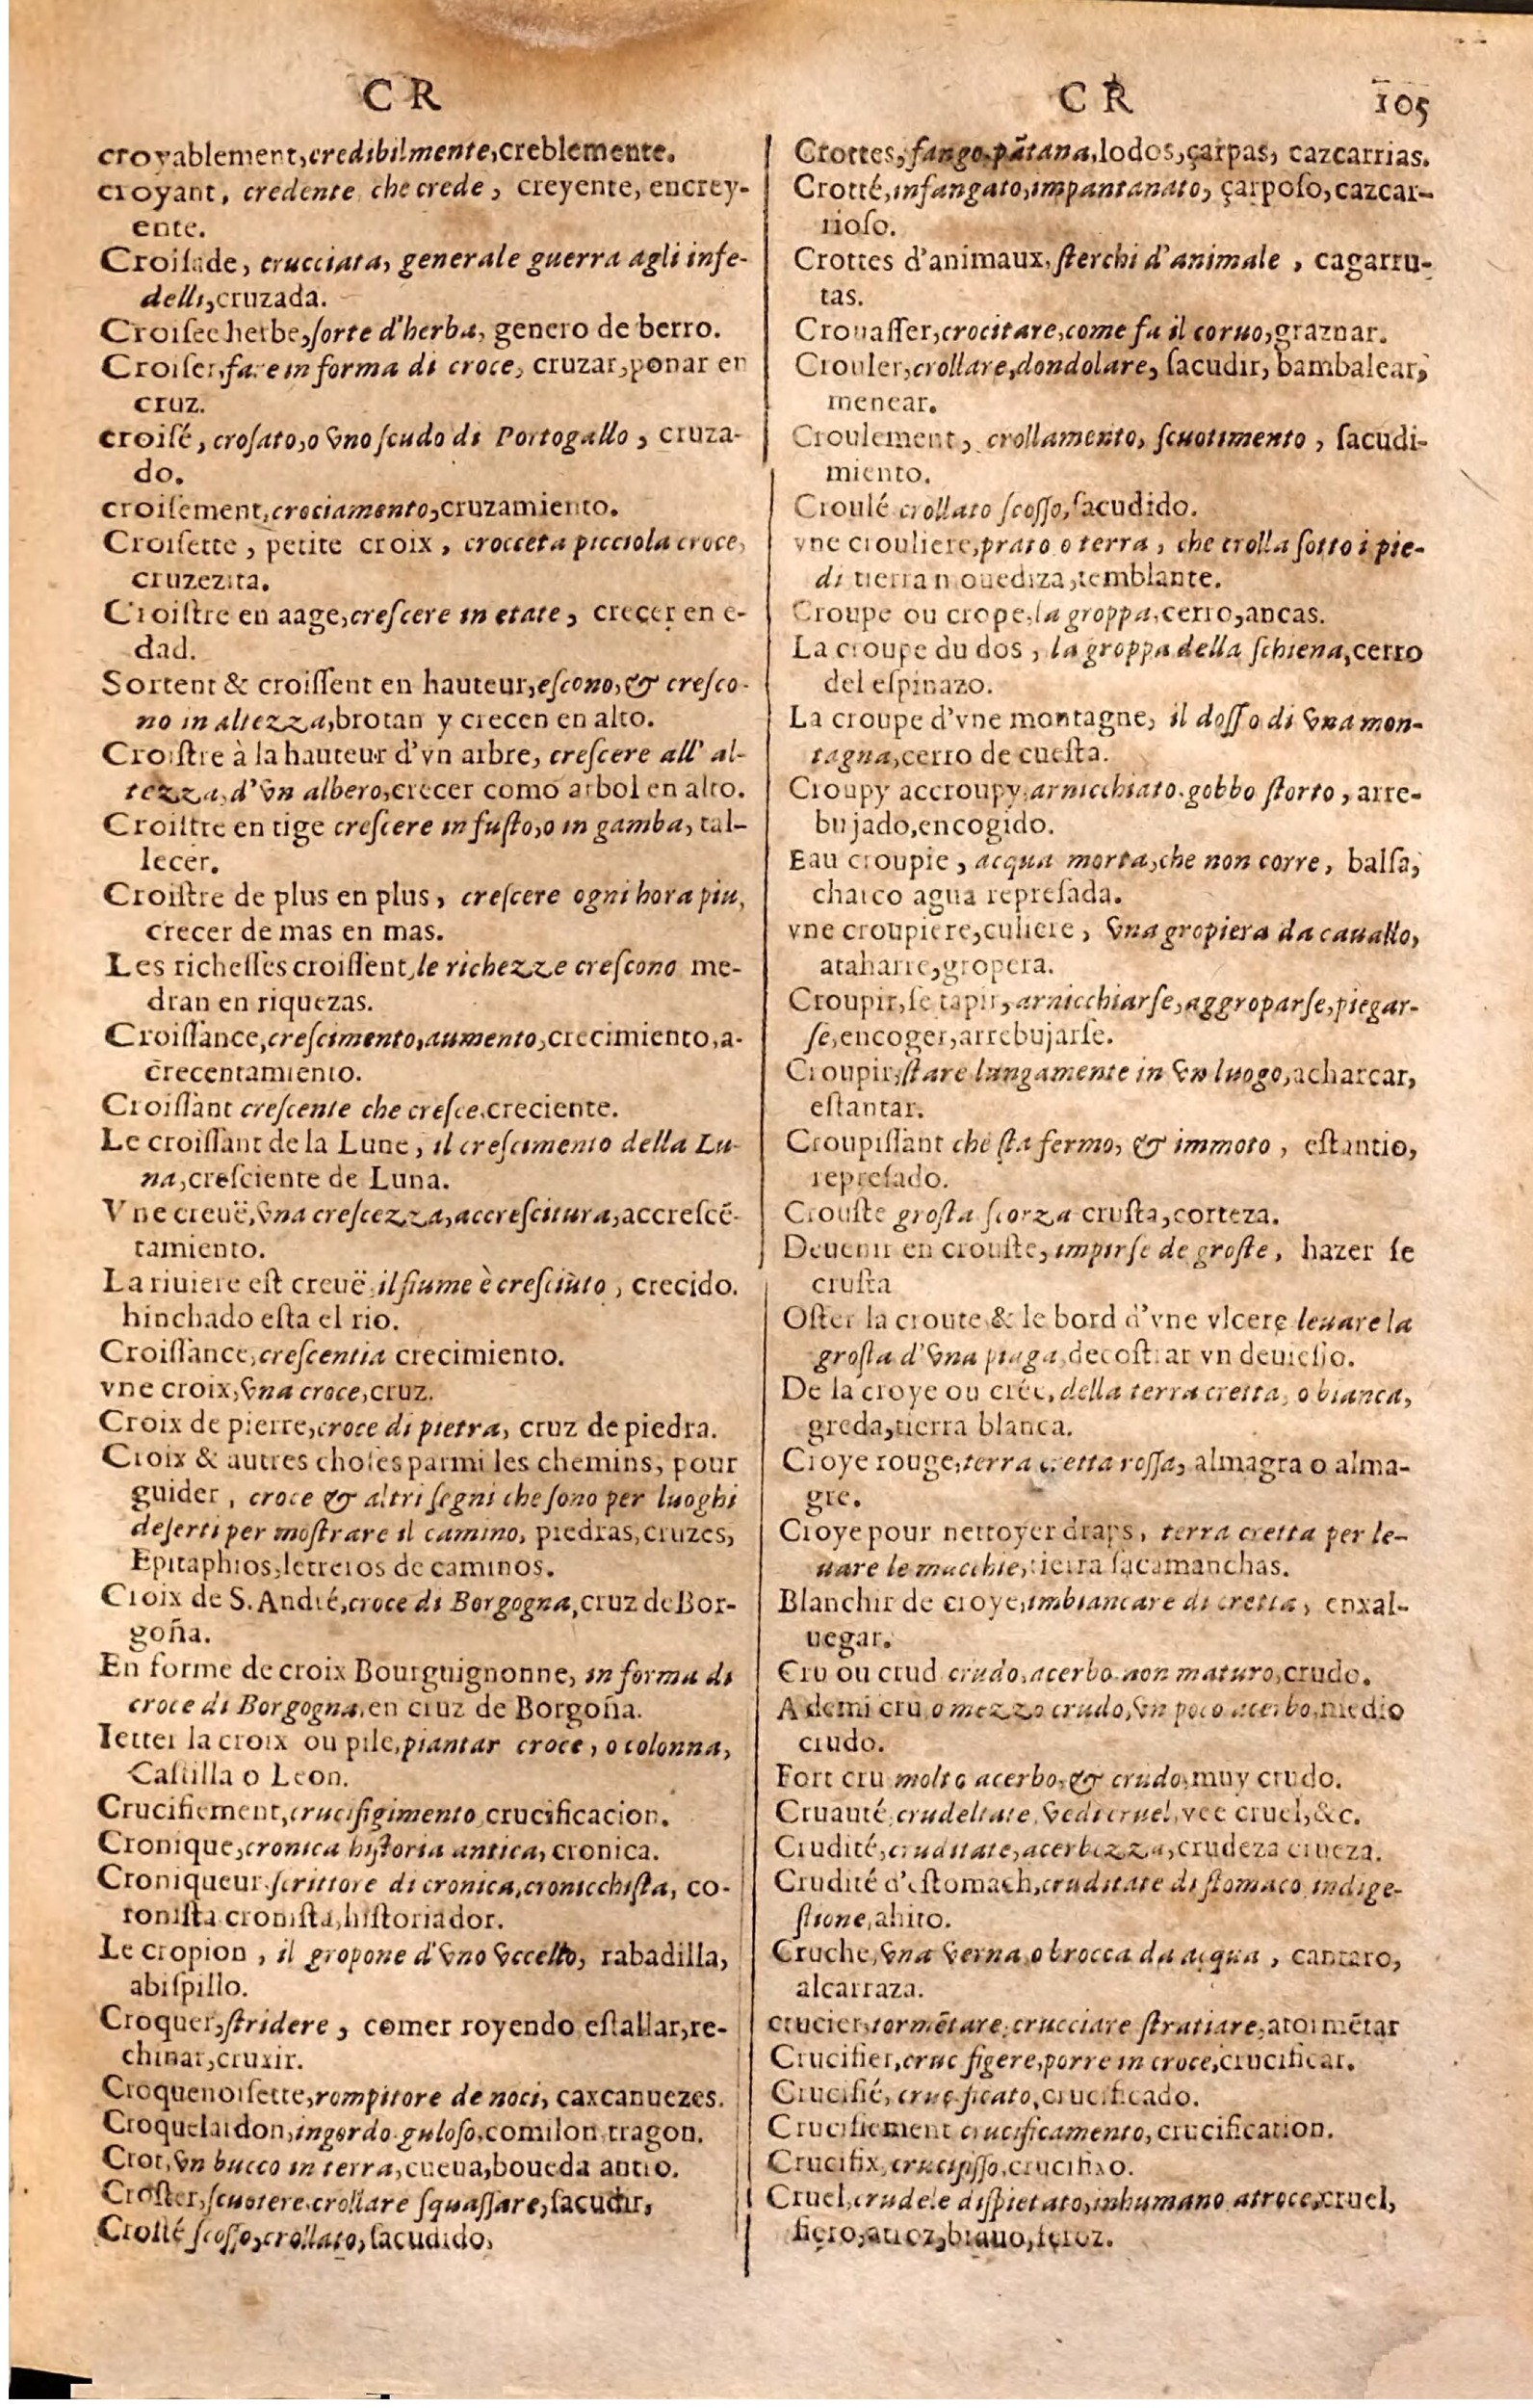 C R
croyablement,credibilmente,creblemente.
croyant, credente che crede, creyente, encrey-
ente.
Croiſade, crucciata, generale guerra agli infe-
delli,cruzada.
Croiſee herbe,ſorte d'herba, genero de berro.
Croiſer,fare in forma di croce, cruzar,ponar en
cruz.
croiſé, croſato,o vno ſcudo di Portogallo, cruza-
do.
croiſement,crociamento,cruzamiento.
Croiſette, petite croix, crocceta picciola croce,
cruzezita.
Croiſtre en aage,creſcere in etate, creçer en e-
dad.
Sortent & croiſſent en hauteur,eſcono,& creſco-
no in altezza,brotan y crecen en alto.
Croiſtre à la hauteur d'vn arbre, creſcere all' al-
tezza,d'vn albero,crecer como arbol en alto.
Croiſtre en tige creſcere in fuſto,o in gamba, tal-
lecer.
Croiſtre de plus en plus, creſcere ogni hora piu,
crecer de mas en mas.
Les richeſſes croiſſent,le richezze creſcono me-
dran en riquezas.
Croiſſance,creſcimento,aumento,crecimiento,a-
crecentamiento.
Croiſſant creſcente che creſce,creciente.
Le croiſſant de la Lune, il creſcimento della Lu-
na,creſciente de Luna.
Vne creuë,vna creſcezza,accreſcitura,accreſcē-
tamiento.
La riuiere eſt creuë,il fiume è creſciùto, crecido.
hinchado eſta el rio.
Croiſſance,creſcentia crecimiento.
vne croix,vna croce,cruz.
Croix de pierre,croce di pietra, cruz de piedra.
Croix & autres choſes parmi les chemins, pour
guider, croce & altri ſegni che ſono per luoghi
deſerti per moſtrare il camino, piedras,cruzes,
Epitaphios,letreros de caminos.
Croix de S. André,croce di Borgogna,cruz de Bor-
goña.
En forme de croix Bourguignonne, in forma di
croce di Borgogna,en cruz de Borgoña.
Ietter la croix ou pile,piantar croce, o colonna,
Caſtilla o Leon.
Crucifiement,crucifigimento,crucificacion.
Cronique,cronica hiſtoria antica, cronica.
Croniqueur,ſcrittore di cronica,cronicchiſta, co-
roniſta croniſta,hiſtoriador.
Le cropion, il gropone d'vno vccello, rabadilla,
abiſpillo.
Croquer,ſtridere, comer royendo eſtallar,re-
chinar,cruxir.
Croquenoiſette,rompitore de noci, caxcanuezes.
Croquelardon,ingordo.guloſo.comilon.tragon.
Crot,vn bucco in terra,cueua,boueda antro.
Croſler,ſcuotere.crollare ſquaſſare,ſacudir,
Croſlé ſcoſſo,crollato,ſacudido,
C R 105
Crottes,fango,pātana,lodos,çarpas, cazcarrias.
Crotté,infangato,impantanato, çarpoſo,cazcar-
rioſo.
Crottes d'animaux,ſterchi d'animale, cagarru-
tas.
Crouaſſer,crocitare,come fa il coruo,graznar.
Crouler,crollare,dondolare, ſacudir, bambalear,
menear.
Croulement, crollamento, ſcuotimento, ſacudi-
miento.
Croulé crollato ſcoſſo,ſacudido.
vne crouliere,prato o terra, che crolla ſotto i pie-
di tierra mouediza,temblante.
Croupe ou crope,la groppa,cerro,ancas.
La croupe du dos, la groppa della ſchiena,cerro
del eſpinazo.
La croupe d'vne montagne, il doſſo di vna mon-
tagna,cerro de cueſta.
Croupy accroupy,arnicchiato.gobbo ſtorto, arre-
bujado,encogido.
Eau croupie, acqua morta,che non corre, balſa,
charco agua repreſada.
vne croupiere,culiere, vna gropiera da cauallo,
ataharre,gropera.
Croupir,ſe tapir,arnicchiarſe,aggroparſe,piegar-
ſe,encoger,arrebujarſe.
Croupir,ſtare lungamente in vn luogo,acharcar,
eſtantar.
Croupiſſant che ſta fermo, & immoto, eſtantio,
repreſado.
Crouſte groſta ſcorza cruſta,corteza.
Deuenir en crouſte, impirſe de groſte, hazer ſe
cruſta
Oſter la croute & le bord d'vne vlcere leuare la
groſta d'vna piaga,decoſtrar vn deuieſſo.
De la croye ou crée,della terra cretta, o bianca,
greda,tierra blanca.
Croye rouge,terra cretta roſſa, almagra o alma-
gre.
Croye pour nettoyer draps, terra cretta per le-
uare le macchie,tierra ſacamanchas.
Blanchir de croye,imbiancare di cretta, enxal-
uegar.
Cru ou crud crudo,acerbo non maturo,crudo.
A demi cru o mezzo crudo,vn poco acerbo,medio
crudo.
Fort cru molto acerbo,& crudo,muy crudo.
Cruauté,crudeltate,vedi cruel,vee cruel,&c.
Crudité,cruditate,acerbezza,crudeza crueza.
Crudité d'eſtomach,cruditate di ſtomaco indige-
ſtione,ahito.
Cruche,vna verna o brocca da acqua, cantaro,
alcarraza.
crucier,tormētare,crucciare ſtratiare,atormētar
Crucifier,cruc figere,porre in croce,crucificar.
Crucifié, crucificato,crucificado.
Crucifiement crucificamento,crucification.
Crucifix,crucifiſſo,crucifixo.
Cruel,crudele diſpietato,inhumano atroce,cruel,
fiero,atroz,brauo,feroz.